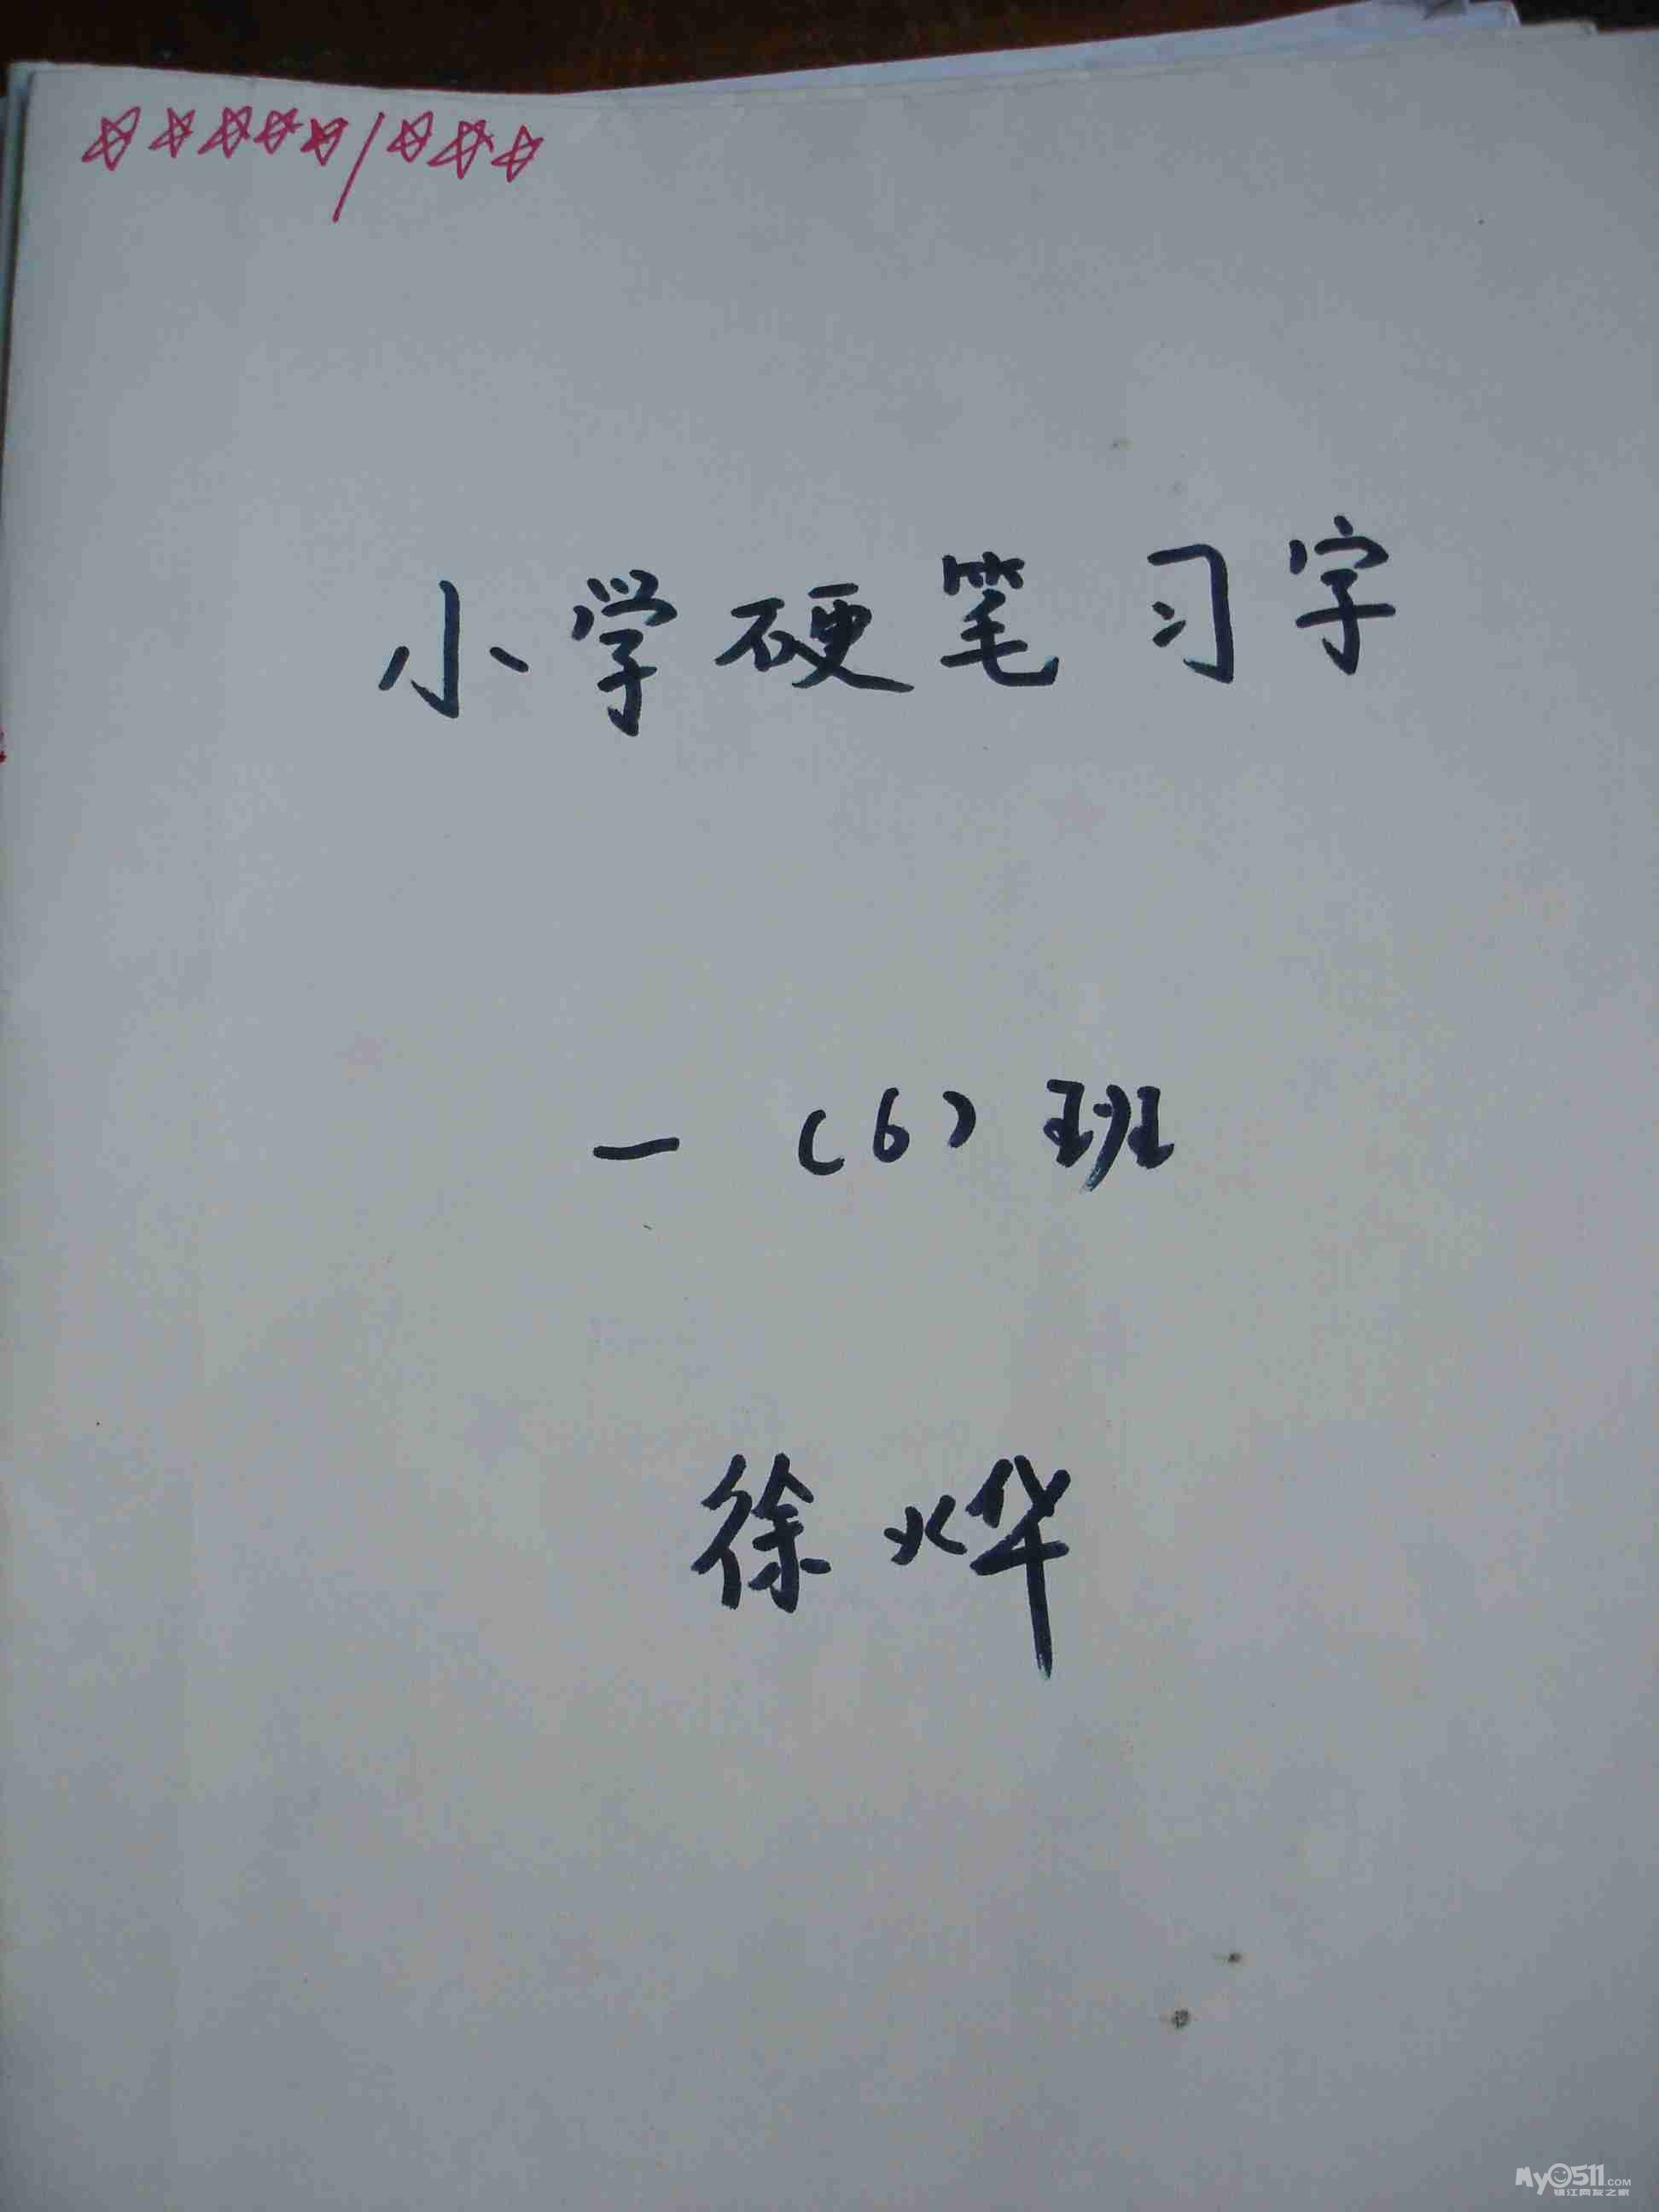 ☆☆☆☆☆/☆☆☆
小学硬笔习字
一(6)班
徐烨
My0511.COM
镇江网友之家